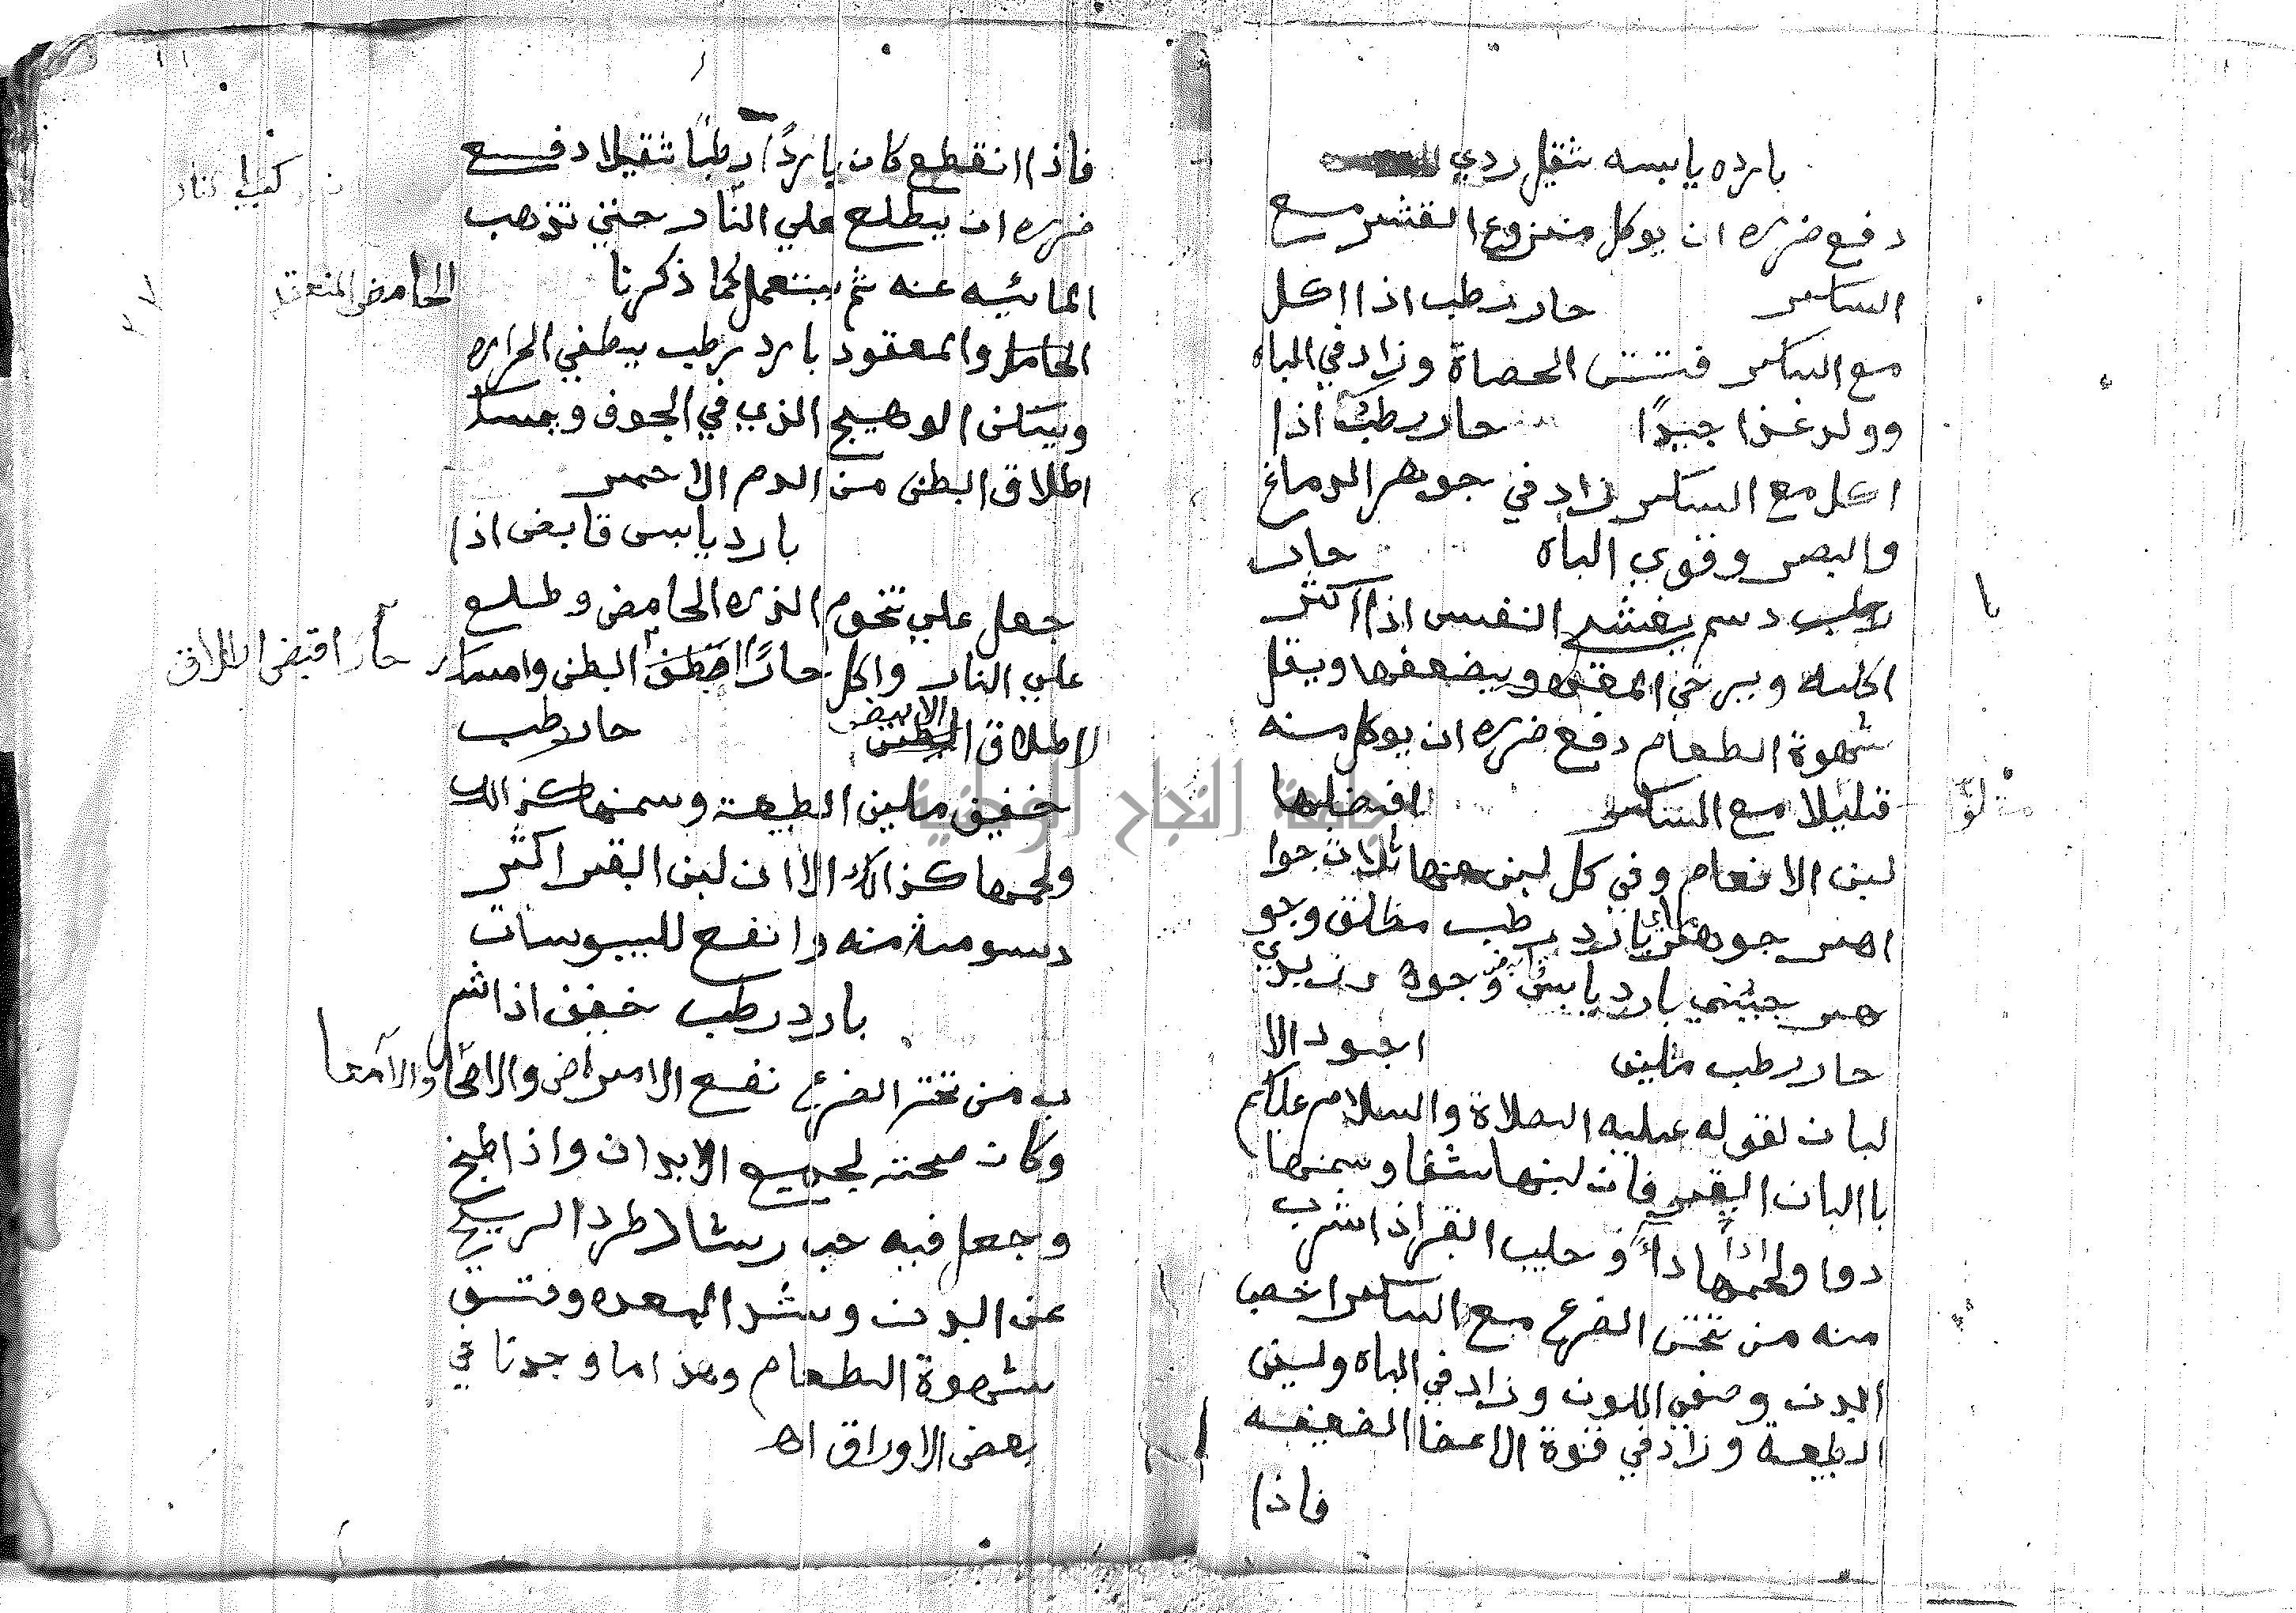 بارده يابسه ثقيل ردي
دفع ضرره ان يوكل منزوع القشر مع
السكر حار رطب اذا اكل
مع السكر فتت الحصاة وزاد في الباه
وولد غذا جيدًا حار رطب اذا
اكل مع السكر زاد في جوهر الدماغ
والبصر وقوي الباه حار
رطب دسم يغشي النفس اذا اكثر
اكله ويرخي المعده ويضعفها ويقل
شهوة الطعام دفع ضرره ان يوكل منه
قليلا مع السكر افضلها
لبن الانعام وفي كل لبن منها ثلاث جوا
اهر جوهر بارد رطب مطلق وجو
هر جبني بارد يابس وجوه زبدي
حار رطب ملين اجود الا
لبان لقوله عليه الصلاة والسلام عليكم
باالبان البقر فان لبنها شفا وسمنها
دوا ولحمها داً و حليب البقر اذا شرب
منه من تحت الضرع مع السكر اخصب
البدن وصفي اللون وزاد في الباه ولين
الطبيعة وزاد في قوة الاعضا الضعيفه
فاذا
فاذا انقطع كان باردًا رطبًا ثقيلا دفع
ضرره ان يطلع علي النار حتي تذهب
المائيه عنه ثم يستعمل كما ذكرنا
الحامض المنعقد
الحامض والمعقود بارد رطب يطفي الحراره
ويسكن الوهيج الذي في الجوف ويمسك
اطلاق البطن من الدم الاحمر
بارد يابس قابض اذا
جعل علي تخوم الذره الحامض وطلع
علي النار واكل حارًا البطن وامسك
حار اقبض اطلاق
لاطلاق البطن الابيض حار رطب
خفيف ملين الطبيعة وسمنها كذالك
ولحمها كذالك الا ان لبن البقر اكثر
دسومة منه وانفع لليبوسات
بارد رطب خفيف اذا شر
ب من تحت الضرع نفع الامراض والامعا
وكان صحته لجميع الابدان واذا طبخ
وجعل فيه حب رشاد طرد الريح
عن البدن وشد المعده وفتق
شهوة الطعام وهذا ما وجدنا في
بعض الاوراق اه
جامعة النجاح الوطنية